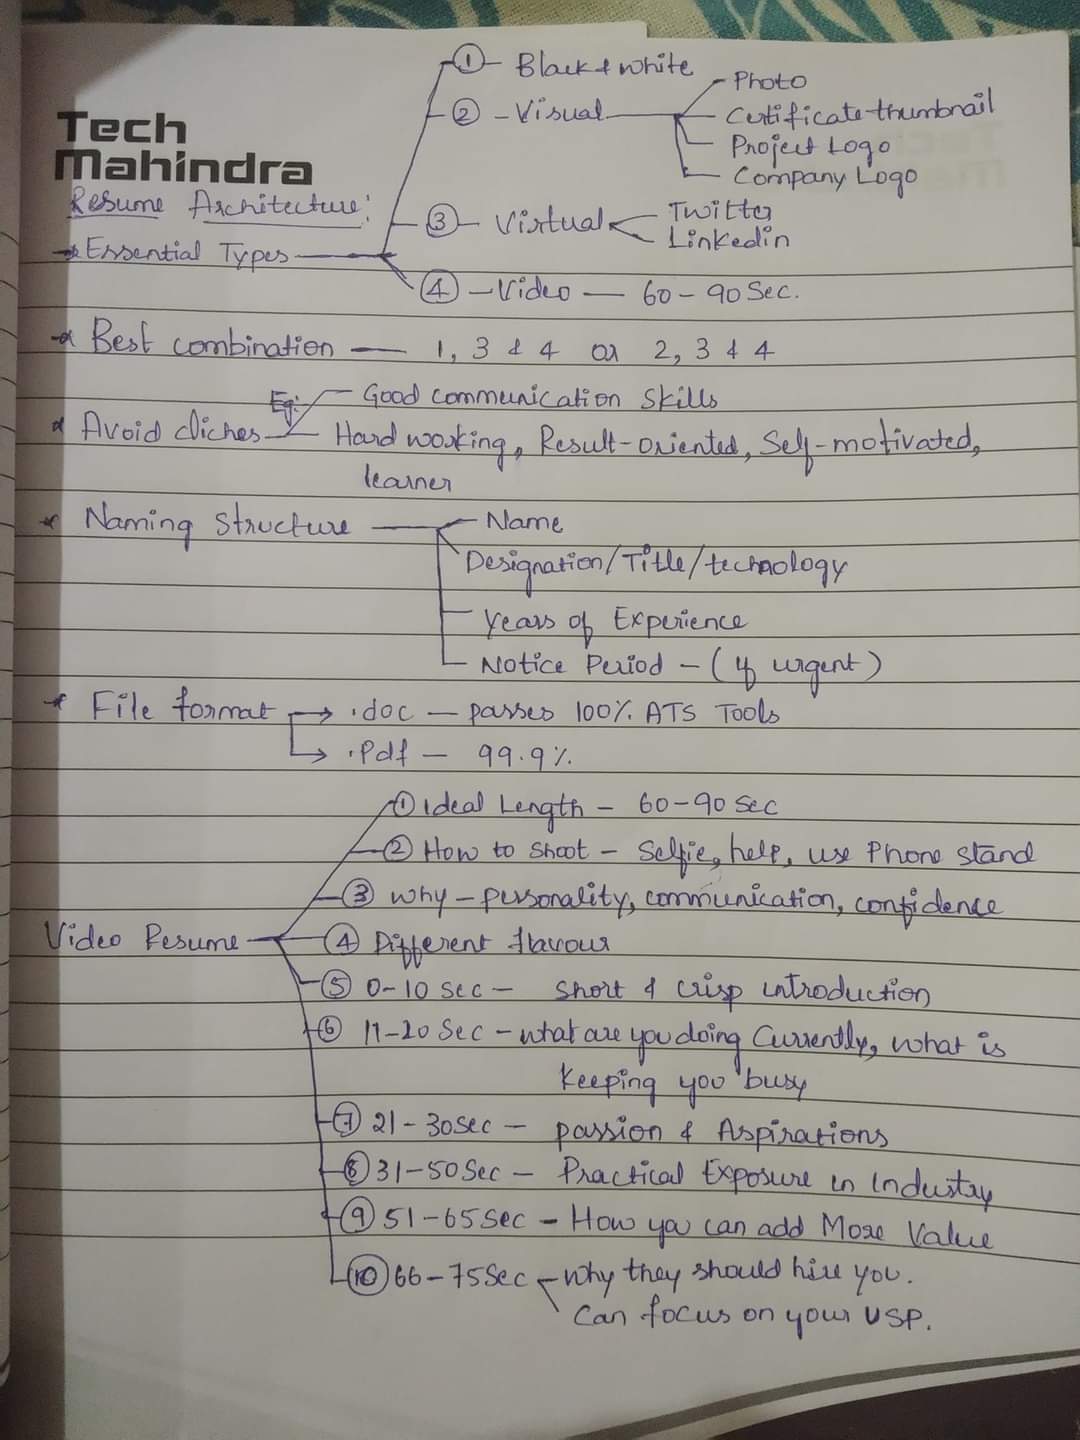 Tech
Mahindra
Resume Architecture:
* Essential Types
① - Black & white
② - Visual
Photo
Certificate thumbnail
Project Logo
Company Logo
③ - Virtual
Twitter
Linkedin
④ - Video - 60 - 90 Sec.
* Best combination - 1, 3 & 4 or 2, 3 & 4
* Avoid cliches
Eg:
Good communication skills
Hard working, Result-oriented, Self-motivated,
learner
* Naming Structure - Name
Designation/Title/technology
Years of Experience
Notice Period - (if urgent)
* File format → .doc - passes 100% ATS Tools
→ .Pdf - 99.9%
Video Resume
① Ideal Length - 60-90 Sec
② How to shoot - Selfie, help, use Phone stand
③ why - personality, communication, confidence
④ Different flavour
⑤ 0-10 sec - Short & crisp introduction
⑥ 11-20 Sec - what are you doing Currently, what is
keeping you busy
⑦ 21-30Sec - passion & Aspirations
⑧ 31-50 Sec - Practical Exposure in Industry
⑨ 51-65 Sec - How you can add More Value
⑩ 66-75Sec - why they should hire you.
Can focus on your USP.